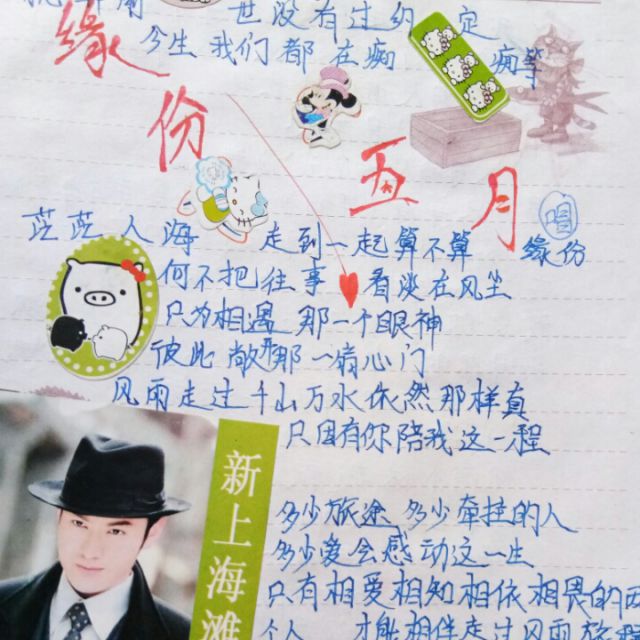 世没有过约定
今生我们都在痴 痴等
缘份
五月 唱
茫茫人海 走到一起算不算 缘份
何不把往事 看淡在风尘
只为相遇 那一个眼神
彼此敞开那一扇心门
风雨走过千山万水依然那样真
只因有你陪我这一程
新上海滩
多少旅途 多少牵挂的人
多少爱会感动这一生
只有相爱相知相依相畏的两
个人 才能相伴走过风雨